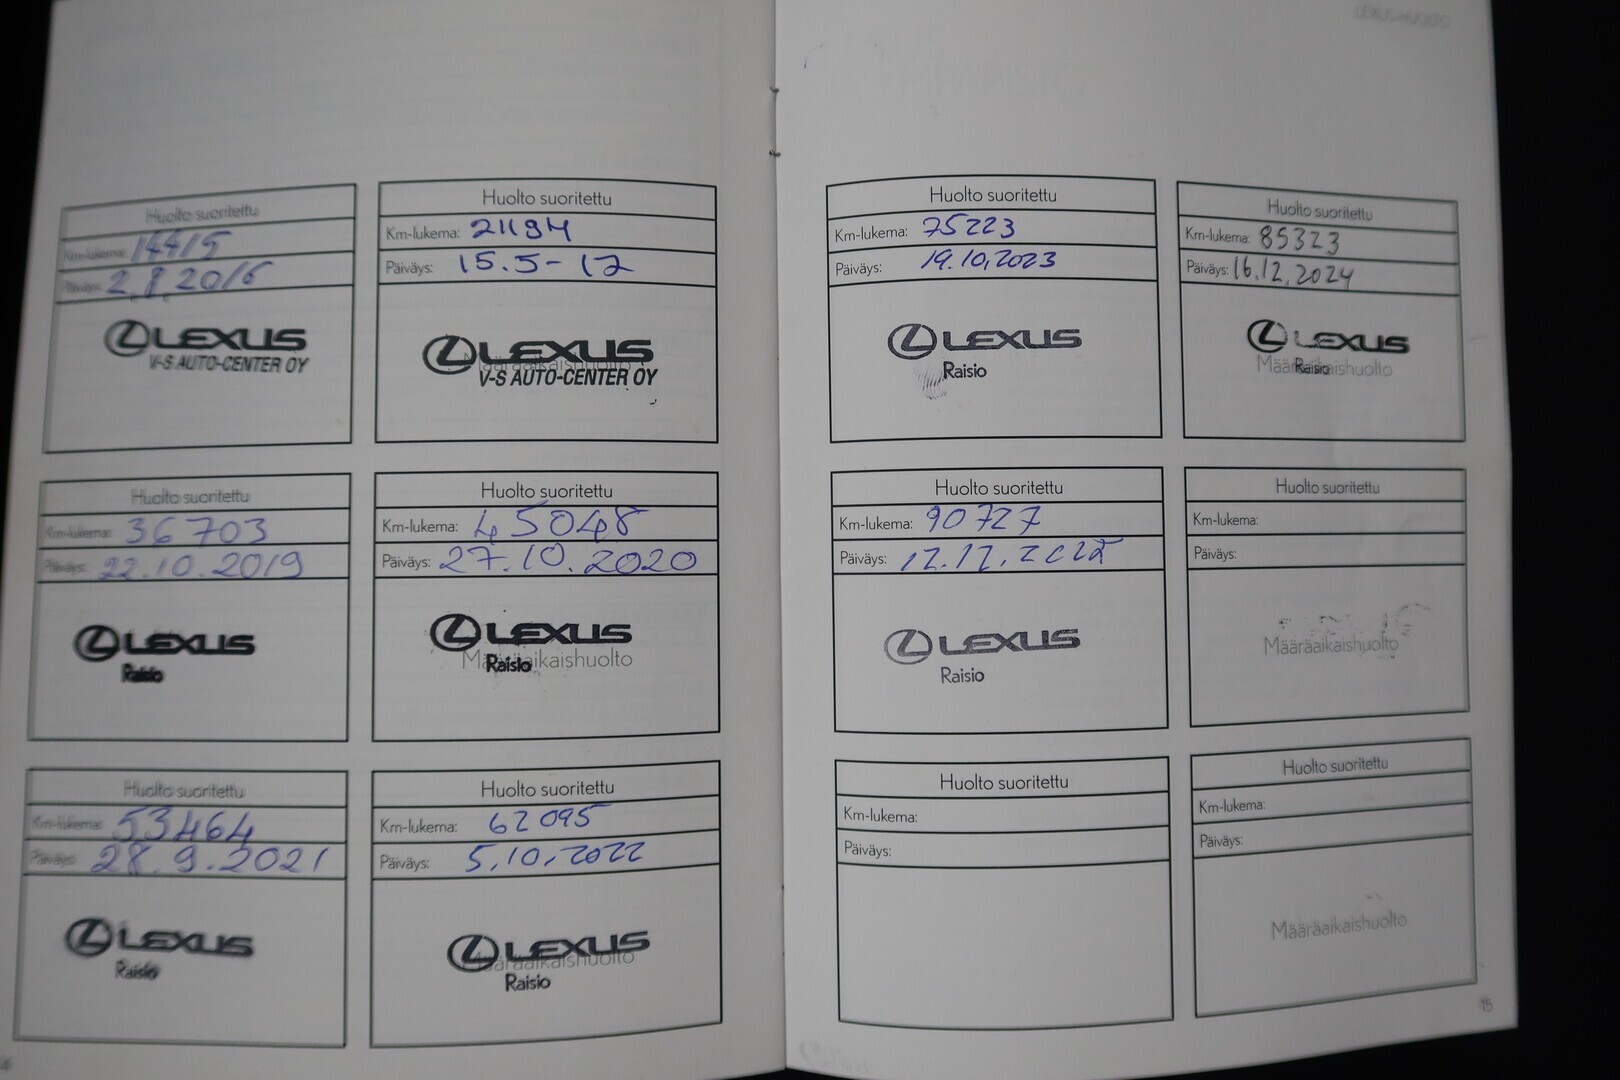 Huolto suoritettu
Km-lukema: 14415
Päiväys: 2.8.2016
LEXUS
V-S AUTO-CENTER OY
Huolto suoritettu
Km-lukema: 21194
Päiväys: 15.5-17
LEXUS
Määräaikaishuolto
V-S AUTO-CENTER OY
Huolto suoritettu
Km-lukema: 36703
Päiväys: 22.10.2019
LEXUS
Raisio
Huolto suoritettu
Km-lukema: 45048
Päiväys: 27.10.2020
LEXUS
Määräaikaishuolto
Raisio
Huolto suoritettu
Km-lukema: 53464
Päiväys: 28.9.2021
LEXUS
Raisio
Huolto suoritettu
Km-lukema: 62095
Päiväys: 5.10.2022
LEXUS
Määräaikaishuolto
Raisio
LEXUS-HUOLTO
Huolto suoritettu
Km-lukema: 75223
Päiväys: 19.10.2023
LEXUS
Raisio
Huolto suoritettu
Km-lukema: 85323
Päiväys: 16.12.2024
LEXUS
Määräaikaishuolto
Raisio
Huolto suoritettu
Km-lukema: 90727
Päiväys: 12.12.2025
LEXUS
Raisio
Huolto suoritettu
Km-lukema:
Päiväys:
Määräaikaishuolto
Huolto suoritettu
Km-lukema:
Päiväys:
Huolto suoritettu
Km-lukema:
Päiväys:
Määräaikaishuolto
15